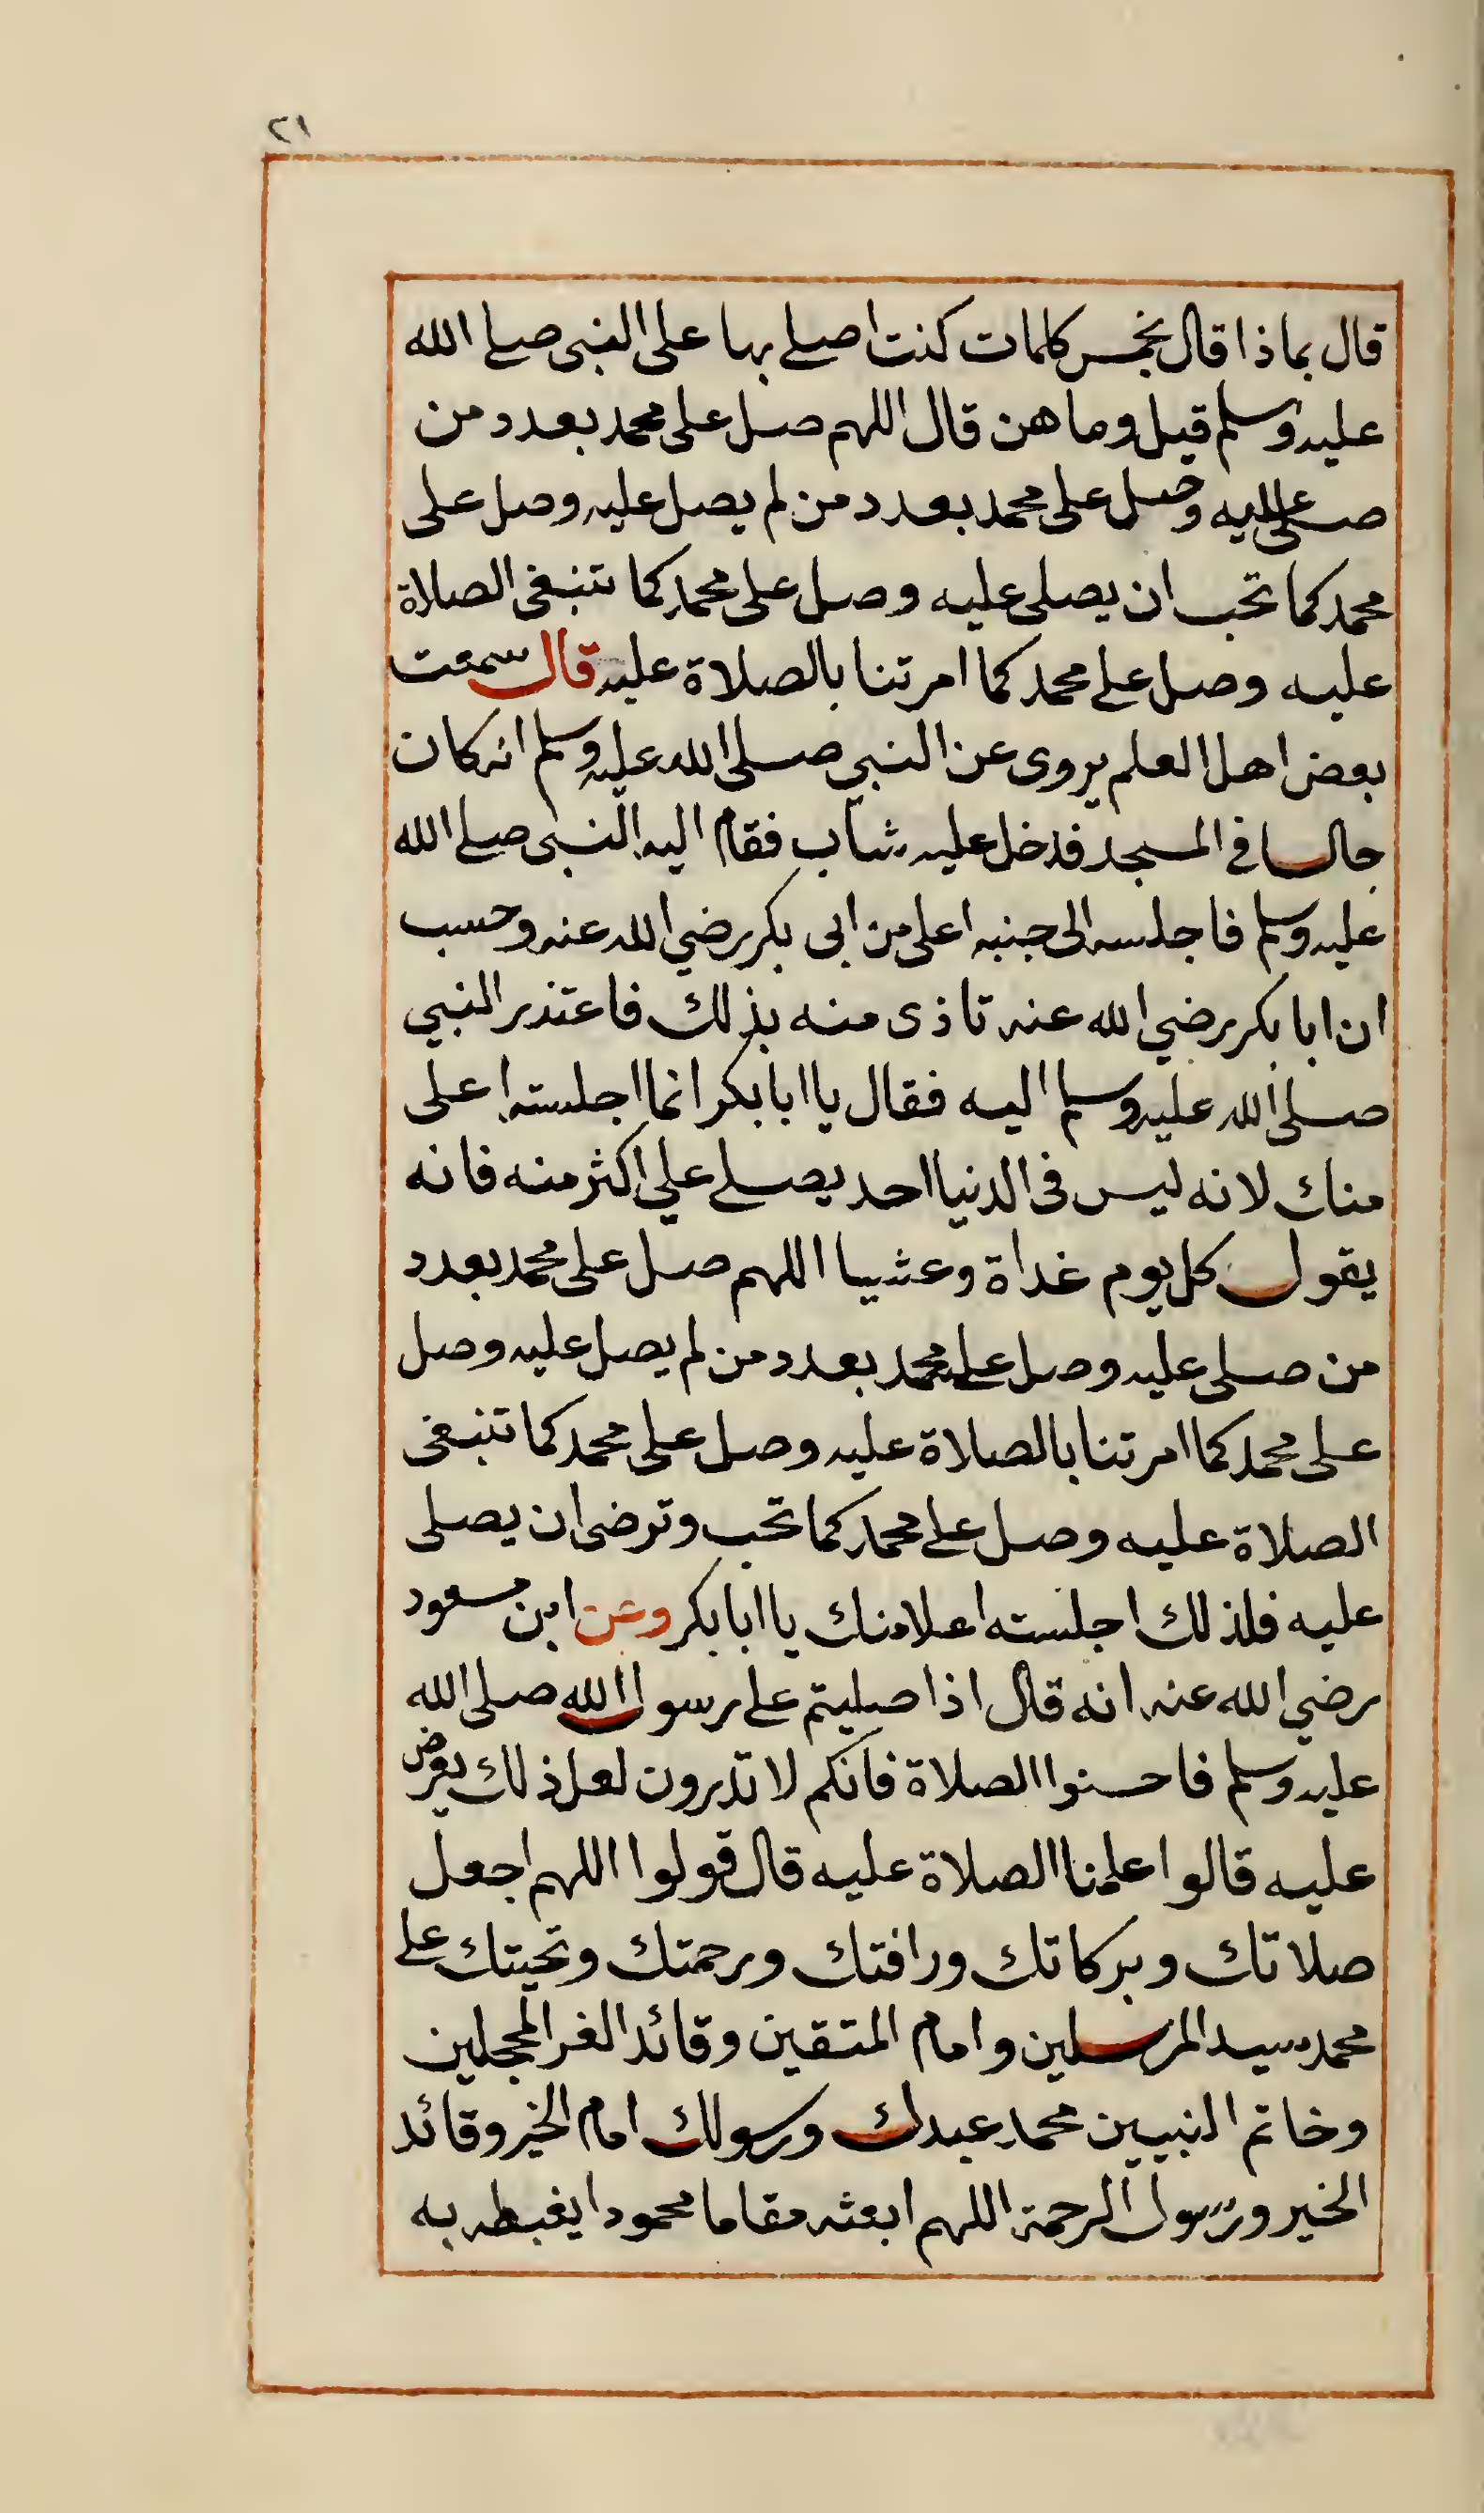 ٢١
قال بماذا قال بخمس كلمات كنت اصلے بها على النبى صلے الله
عليه وسلم قيل وما هن قال اللهم صل على محمد بعدد من
صلى عليه وصل على محمد بعدد من لم يصل عليه وصل على
محمد كما تحب ان يصلى عليه وصل على محمد كما تنبغى الصلاة
عليه وصل علے محمد كما امرتنا بالصلاة عليه قال سمعت
بعض اهل العلم يروى عن النبي صلى الله عليه وسلم انه كان
جالسا فى المسجد فدخل عليه شاب فقام اليه النبى صلے الله
عليه وسلم فاجلسه الى جنبه اعلى من ابى بكر رضي الله عنه وحسب
ان ابا بكر رضي الله عنه تاذى منه بذلك فاعتذر النبي
صلى الله عليه وسلم اليه فقال يا ابا بكر انما اجلسته اعلى
منك لانه ليس فى الدنيا احد يصلے علي اكثر منه فانه
يقول كل يوم غداة وعشيا اللهم صل على محمد بعدد
من صلى عليه وصل علے محمد بعدد من لم يصل عليه وصل
على محمد كما امرتنا بالصلاة عليه وصل على محمد كما تنبغى
الصلاة عليه وصل علے محمد كما تحب وترضى ان يصلى
عليه فلذلك اجلسته اعلا منك يا ابا بكر وعن ابن مسعود
رضي الله عنه انه قال اذا صليتم علے رسول الله صلى الله
عليه وسلم فاحسنوا الصلاة فانكم لا تدرون لعل ذلك يعرض
عليه قالوا علمنا الصلاة عليه قال قولوا اللهم اجعل
صلاتك وبركاتك ورافتك ورحمتك وتحيتك علے
محمد سيد المرسلين وامام المتقين وقائد الغر المحجلين
وخاتم النبيين محمد عبدك ورسولك امام الخير وقائد
الخير ورسول الرحمة اللهم ابعثه مقاما محمودا يغبطه به